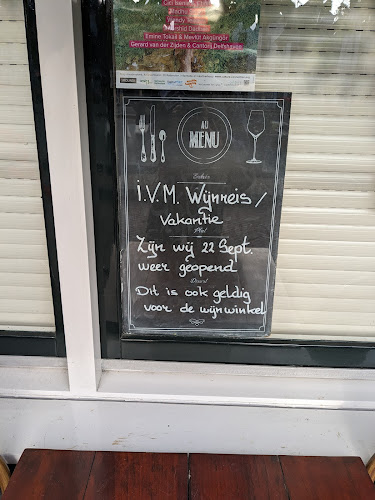 Emine Tokail & Mevlüt Akgüngör
Gerard van der Zijden & Cantorij Delfshaven
AU
MENU
Entrée
i.V.M. Wijnreis /
Vakantie
Plat
Zijn wij 22 Sept.
weer geopend
Dessert
Dit is ook geldig
voor de wijnwinkel